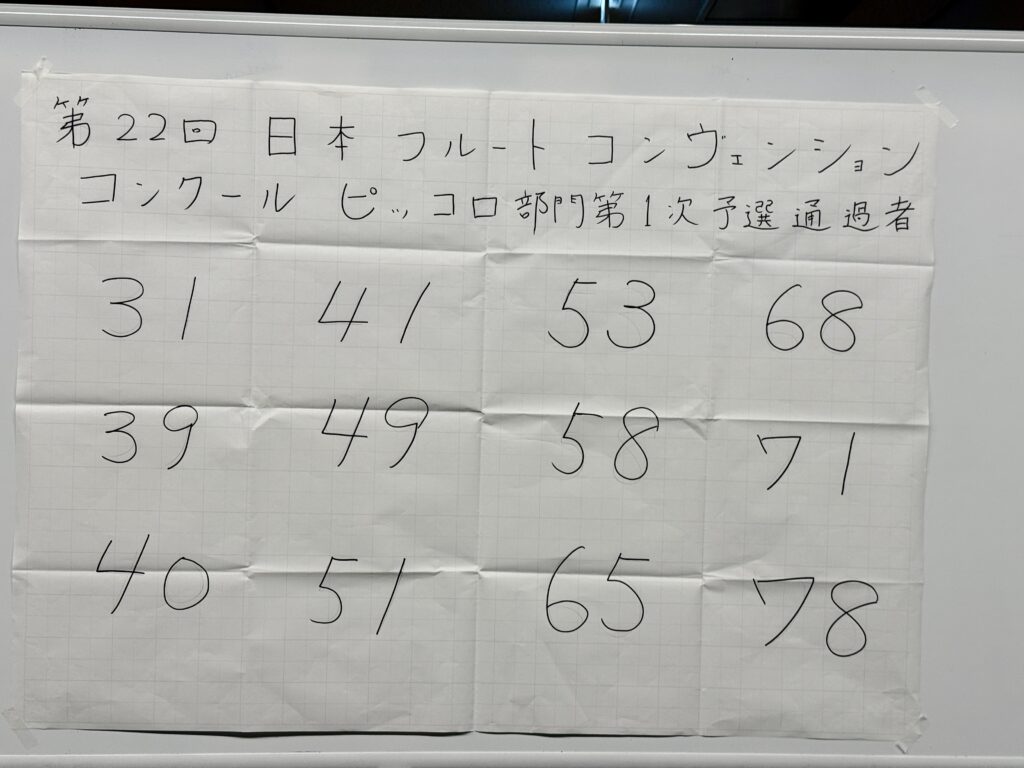 第22回 日本 フルート コンヴェンション
コンクール ピッコロ部門第1次予選通過者
31 41 53 68
39 49 58 71
40 51 65 78